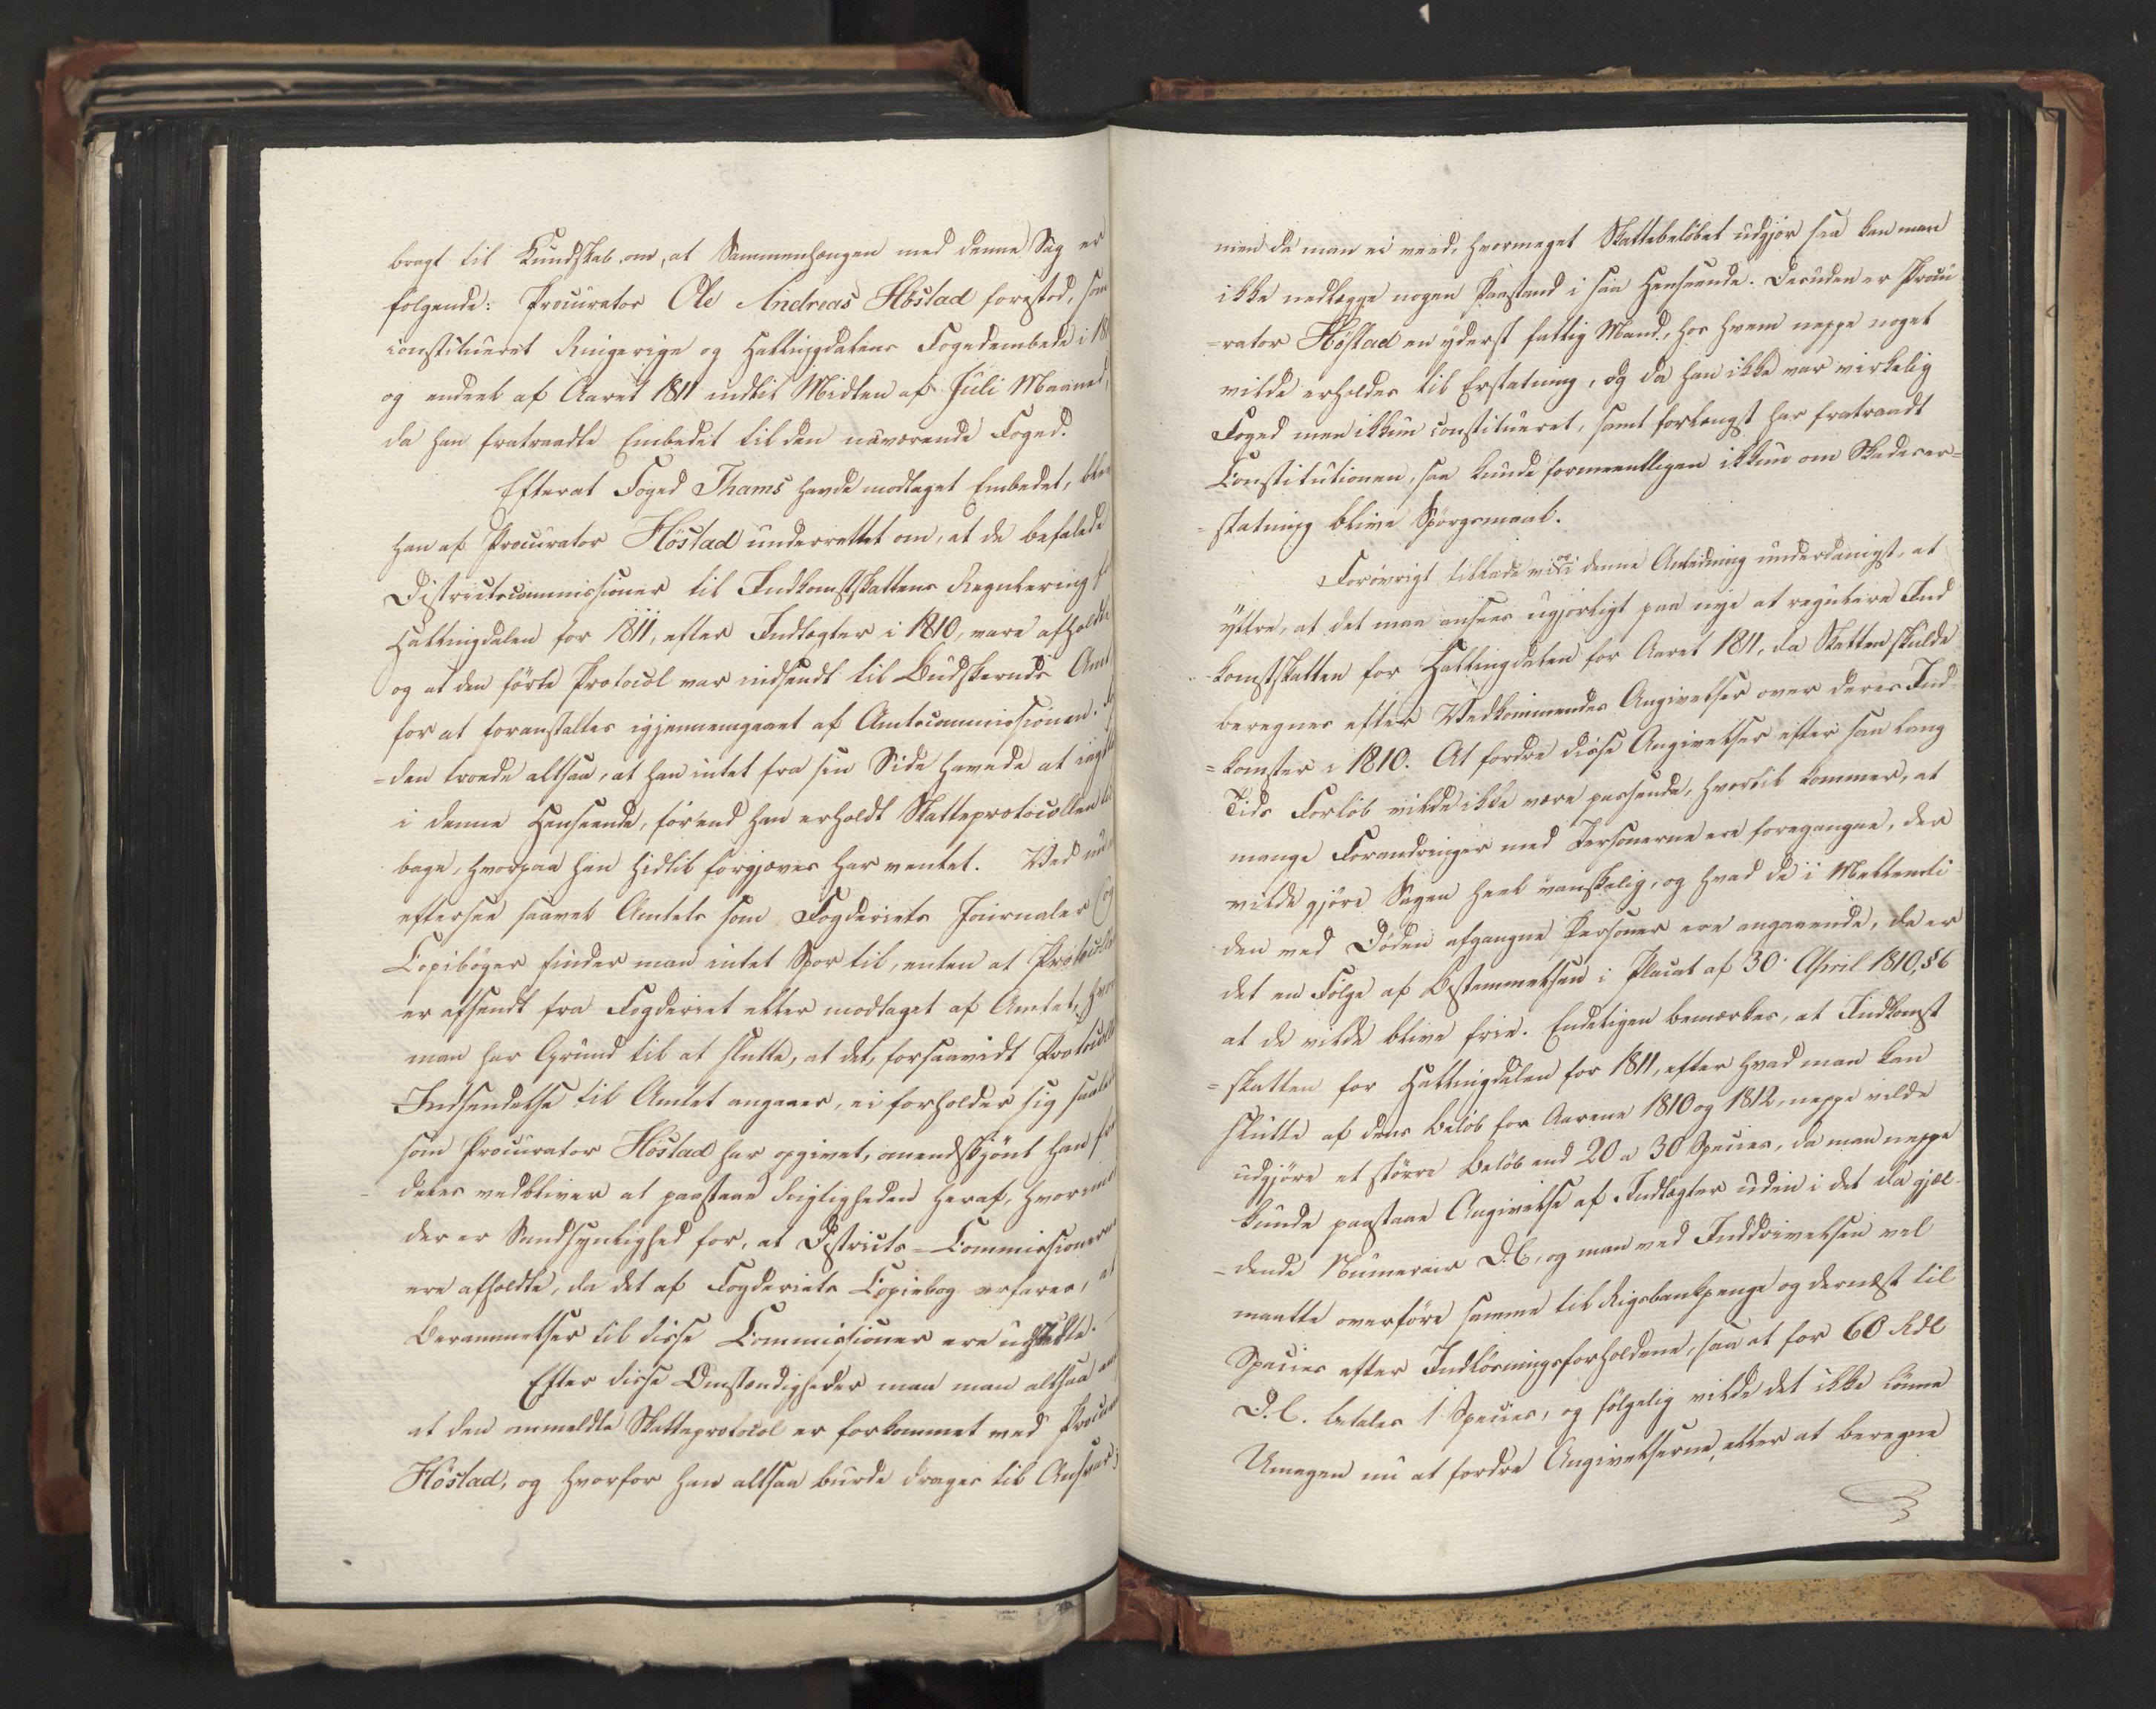 bragt til Kundskab om, at Sammenhængen med denne Sag er
følgende: Procurator Ole Andreas Höstad forestod, som
constitueret Ringerige og Hallingdalens Fogedembede i 18
og endeel af Aaret 1811 indtil Midten af Juli Maaned,
da han fratraadte Embedet til den nuværende Foged.
Efterat Foged Thams havde modtaget Embedet, blev
han af Procurator Höstad underrettet om, at de befalede
Districtscommissioner til Indkomstskattens Regulering f
Hallingdalen for 1811, efter Indtægter i 1810, vare afholdte
og at den førte Protocol var indsendt til Budskeruds Amt
for at foranstaltes igjennemgaaet af Amtscommissionen.
=den troede altsaa, at han intet fra sin Side havde at iagt
i denne Henseende, førend han erholdt Skatteprotocollen til
bage, hvorpaa han hidtil forgjæves har ventet. Ved nu
eftersee saavel Amtets som Fogderiets Journaler og
Copibøger finder man intet Spor til, enten at Protocoll
er afsendt fra Fogderiet eller modtaget af Amtet, hvor
man har Grund til at slutte, at det, forsaavidt Protocoll
Indsendelse til Amtet angaaer, ei forholder sig saaled
som Procurator Höstad har opgivet, omendskjönt han fr
deles vedbliver at paastaae Rigtigheden heraf, hvorimod
der er Sandsynlighed for, at Districts=Commissionerne
ere afholdte, da det af Fogderiets Copiebog erfares, at
Berammelser til disse Commissioner ere udstædte.
Efter disse Omstændigheder maa man altsaa an
at den anmeldte Skatteprotocol er forkommet med Procur
Höstad, og hvorfor han altsaa burde drages til Ansvar;
men da man ei veed, hvormeget Skattebeløbet udgjør saa kan man
ikke nedlægge nogen Paastand i saa Henseende. Desuden er Procu
=rator Höstad en yderst fattig Mand, hos hvem neppe noget
vilde erholdes til Erstatning, og da han ikke var virkelig
Foged men ikkun constitueret, samt forlængst har fratraadt
Constitutionen, saa kunde formeentligen ikkun om Skadeser=
=statning blive Spørgsmaal.
Forøvrigt tillade vi os i denne Anledning underdanigst, at
yttre, at det maa ansees ugjørligt paa nye at regulere Ind
komstskatten for Hallingdalen for Aaret 1811, da Skatten skulde
beregnes efter Vedkommendes Angivelser over deres Ind=
=komster i 1810. At fordre disse Angivelser efter saa lang
Tids Forløb vilde ikke være passende, hvortil kommer, at
mange Forandringer med Personerne ere foregangne, der
vilde gjøre Sagen heel vanskelig, og hvad de i Mellemti=
den ved Døden afgangne Personer ere angaaende, da er
det en Følge af Bestemmelsen i Placat af 30. April 1810, § 6
at de vilde blive frie. Endeligen bemærkes, at Indkomst
=skatten for Hallingdalen for 1811, efter hvad man kan
slutte af dens Beløb for Aarene 1810 og 1812, neppe vilde
udgjøre et større Beløb end 20 a 30 Species, da man neppe
kunde paastaae Angivelse af Indtægter uden i det da gjæl=
=dende Numerair D.C., og man ved Inddrivelsen vel
maatte overføre samme til Rigsbankpenge og dernæst til
Species efter Indløsningsforholdene, saa at for 60 Rdl
D.C. betales 1 Species, og følgelig vilde det ikke lønne
Umagen nu at fordre Angivelserne, eller at beregne